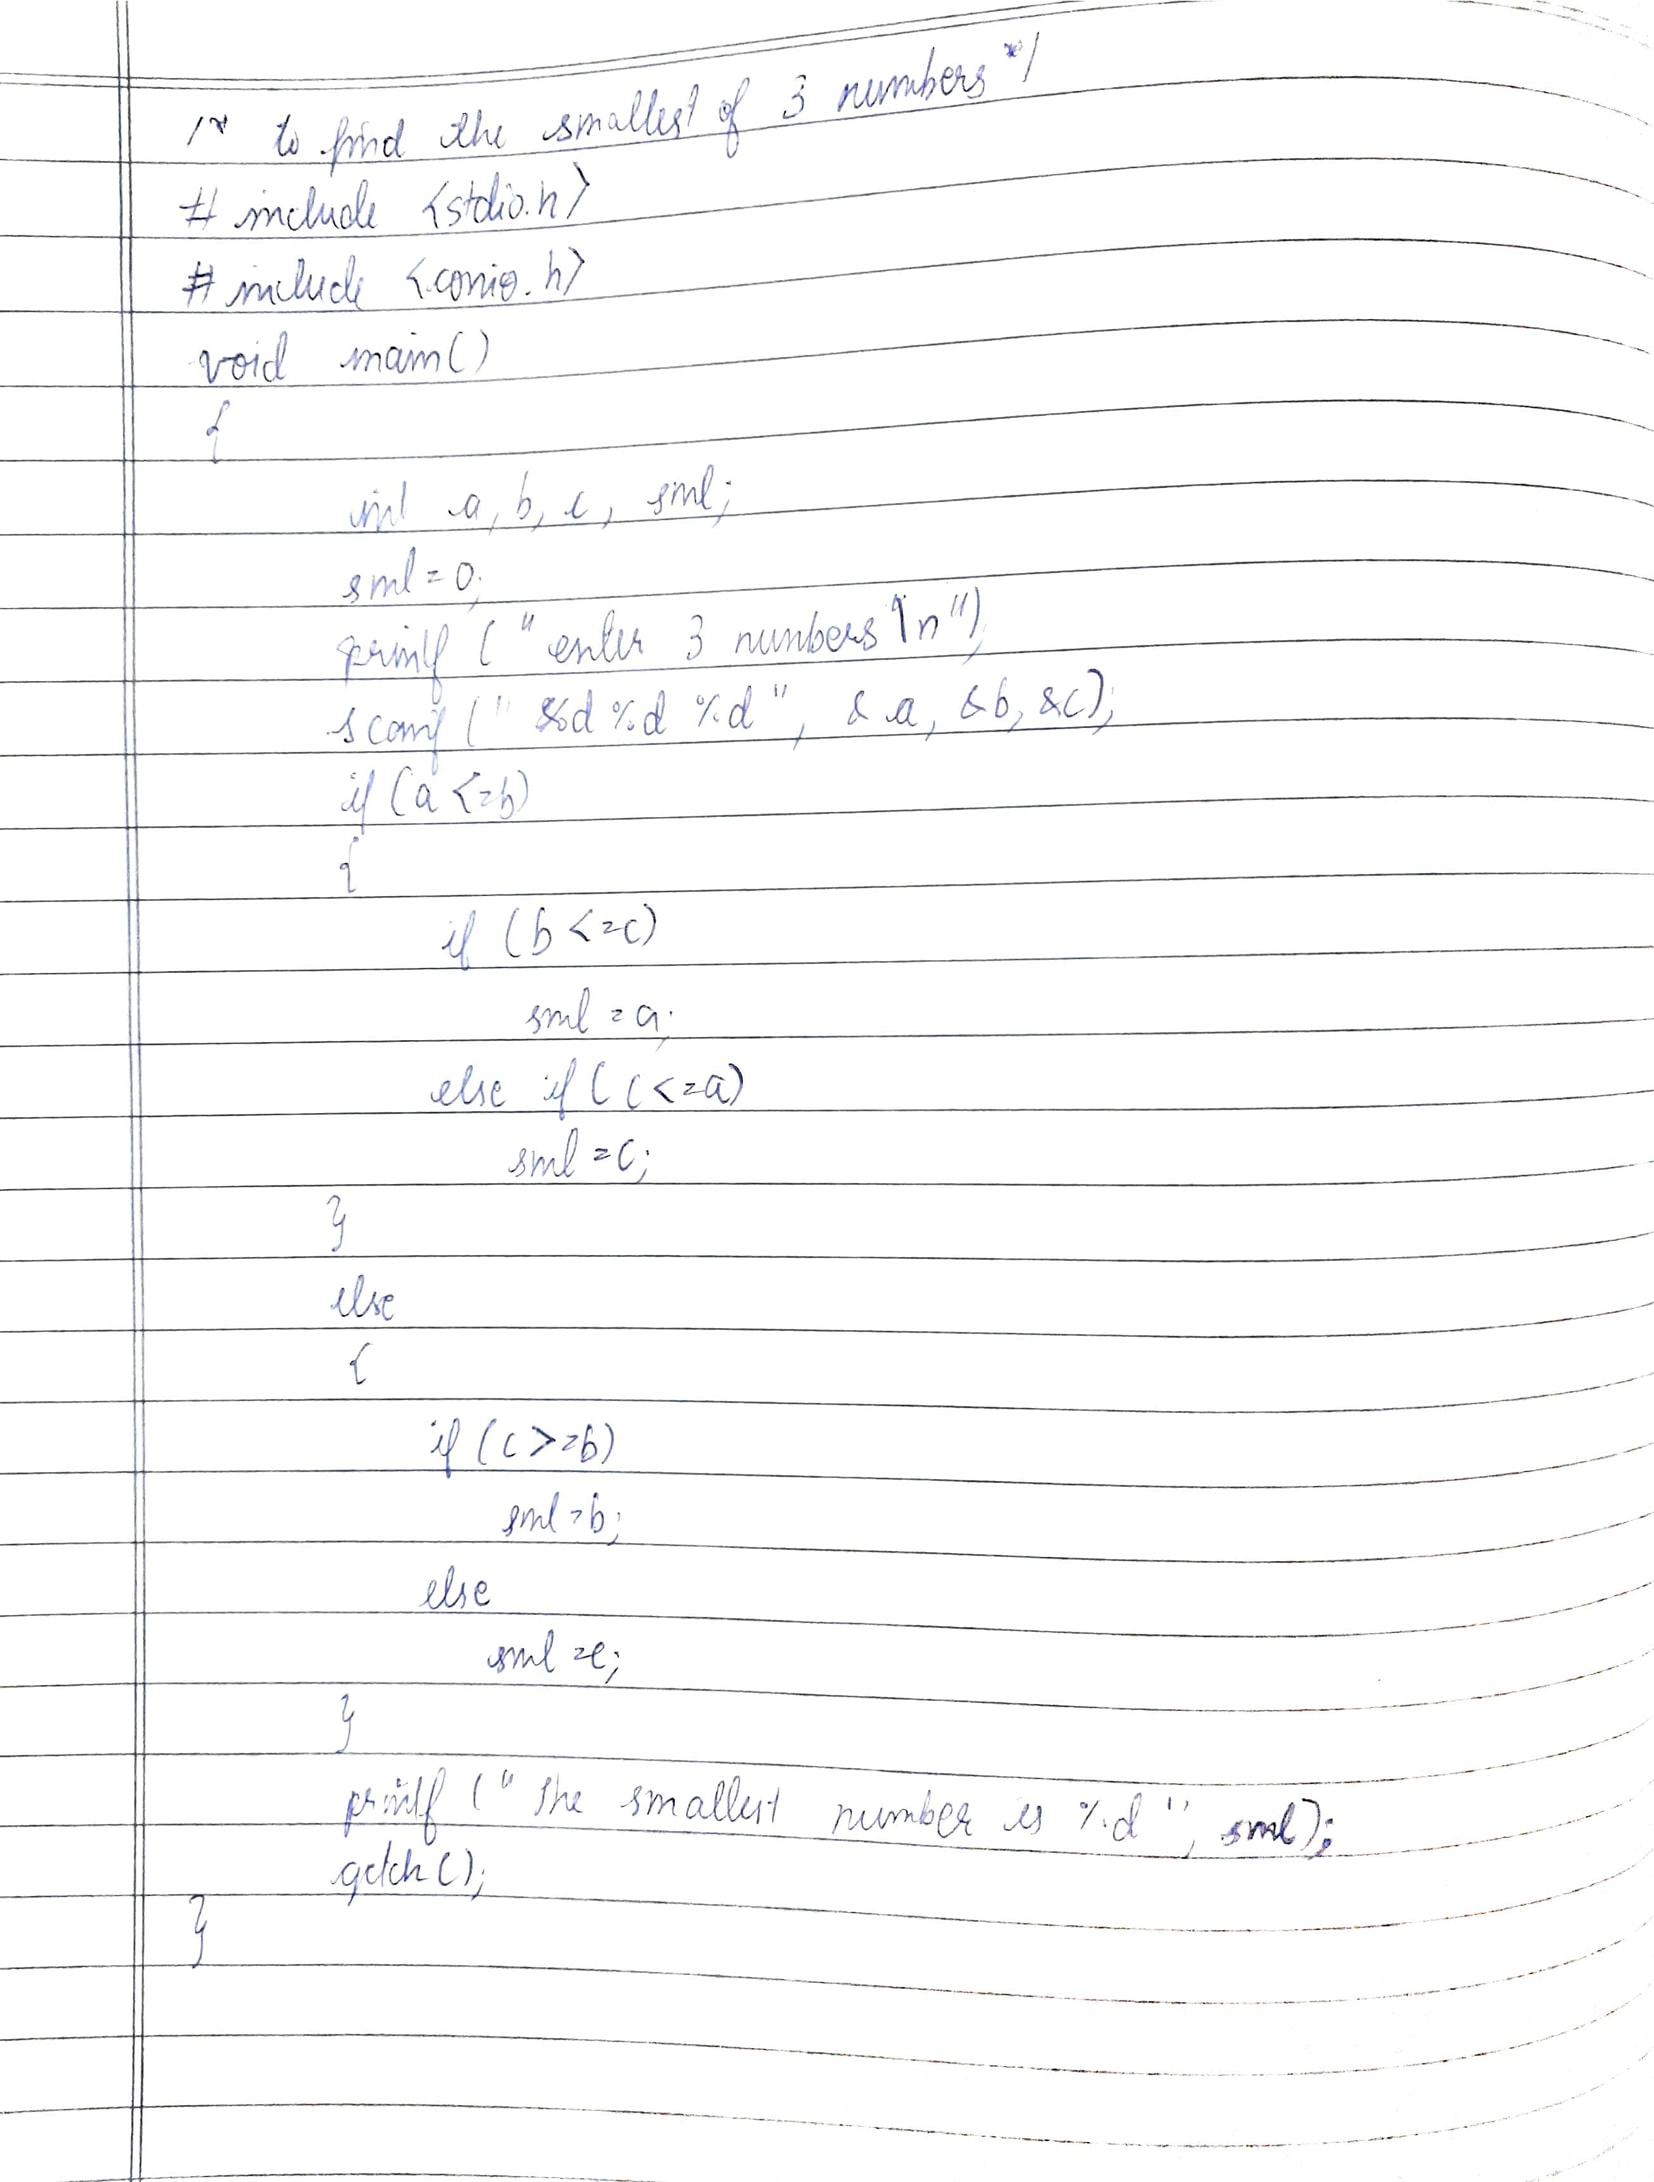 /* to find the smallest of 3 numbers */
# include <stdio.h>
# include <conio.h>
void main()
{
int a, b, c, sml;
sml = 0;
printf (" enter 3 numbers \n");
scanf (" %d %d %d ", & a, &b, &c);
if (a <=b)
{
if (b <=c)
sml = a;
else if (c<=a)
sml =c;
}
else
{
if (c >=b)
sml =b;
else
sml =c;
}
printf (" The smallest number is %d ", sml);
getch();
}